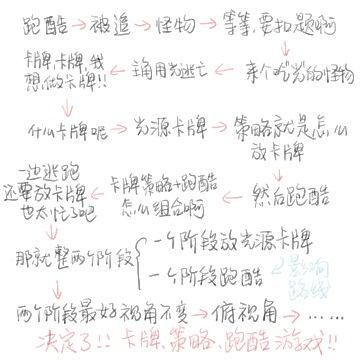 跑酷 → 被追 → 怪物 → 等等,要扣题啊
卡牌,卡牌,我想做卡牌!! ← 主角用光逃亡 ← 来个吃光的怪物
什么卡牌呢 → 光源卡牌 → 策略就是怎么放卡牌
一边逃跑还要放卡牌也太忙了吧 ← 卡牌策略+跑酷怎么组合啊 ← 然后跑酷
那就整两个阶段 { 一个阶段放光源卡牌
一个阶段跑酷
影响路线
两个阶段最好视角不变 → 俯视角 → ……
决定了!! 卡牌、策略、跑酷游戏!!